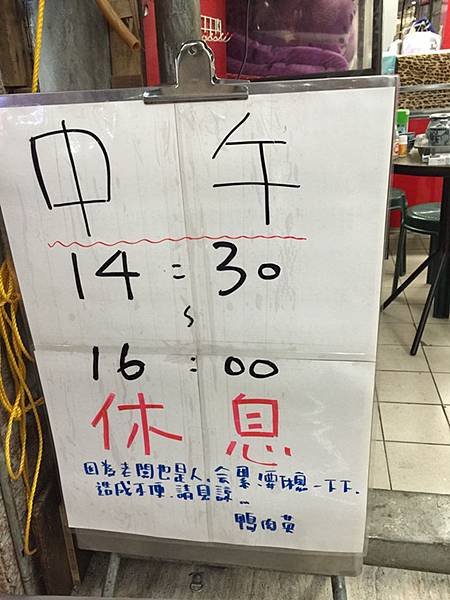 中午
14:30
~
16:00
休息
因為老闆也是人,会累!要休憩一下下.
造成不便.請見諒...
鴨肉黃